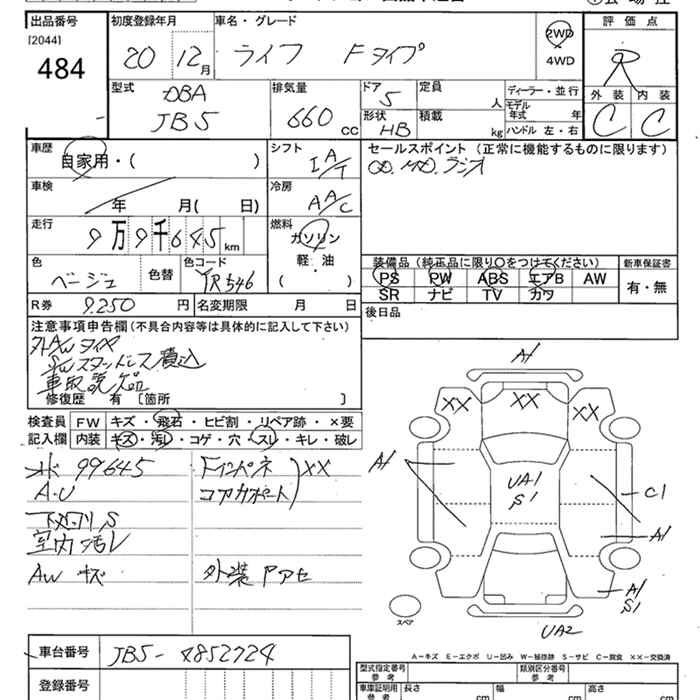 出品番号
[2044]
484
初度登録年月
20 12月
車名・グレード
ライフ Fタイプ
2WD
4WD
評価点
R
外装 内装
C C
型式
DBA
JB5
排気量
660 cc
ドア 5
形状 HB
定員 人
積載 kg
ディーラー・並行
モデル年式 年
ハンドル 左・右
車歴
自家用・( )
シフト
I A/T
セールスポイント (正常に機能するものに限ります)
車検
年 月( 日)
冷房
A/C
走行
9万9千645km
燃料
ガソリン
軽・油
( )
色
ベージュ
色替
色コード
YR546
装備品 (純正品に限り○をつけてください)
PS PW ABS エアB AW
SR ナビ TV カワ
新車保証書
有・無
R券 9.250 円
名変期限 月 日
後日品
注意事項申告欄(不具合内容等は具体的に記入して下さい)
外AWタイヤ
SWスタッドレス積込
車取説欠品
修復歴 有 [箇所 ]
検査員記入欄
FW キズ・飛石・ヒビ割・リペア跡・×要
内装 キズ・汚レ・コゲ・穴・スレ・キレ・破レ
99645
A・U
Fインパネ
コアサポート
)××
S
室内汚レ
AW キズ
外装 アアセ
A1
×× ×× ××
A1
UA1
S1
C1
A1
A1
S1
スペア
UA2
A−キズ E−エクボ U−凹み W−補修跡 S−サビ C−腐食 ××−交換済
車台番号
JB5-4852724
登録番号
型式指定番号
参考
類別区分番号
参考
車庫証明用
参考
長さ cm
幅 cm
高さ cm